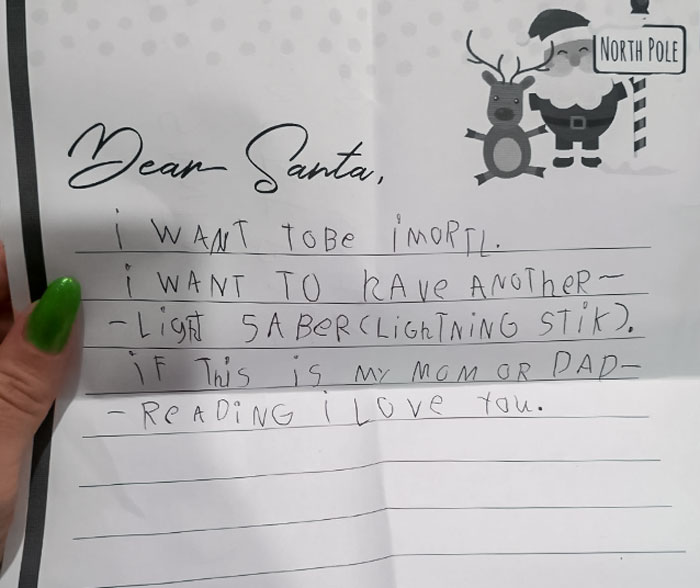 NORTH POLE
Dear Santa,
i WANT TOBe iMORTL.
i WANT TO hAve ANOTheR–
–LigHt SABeR(LighTNiNG STiK).
iF This is MY MOM OR DAD–
–ReADiNG i LOVe You.